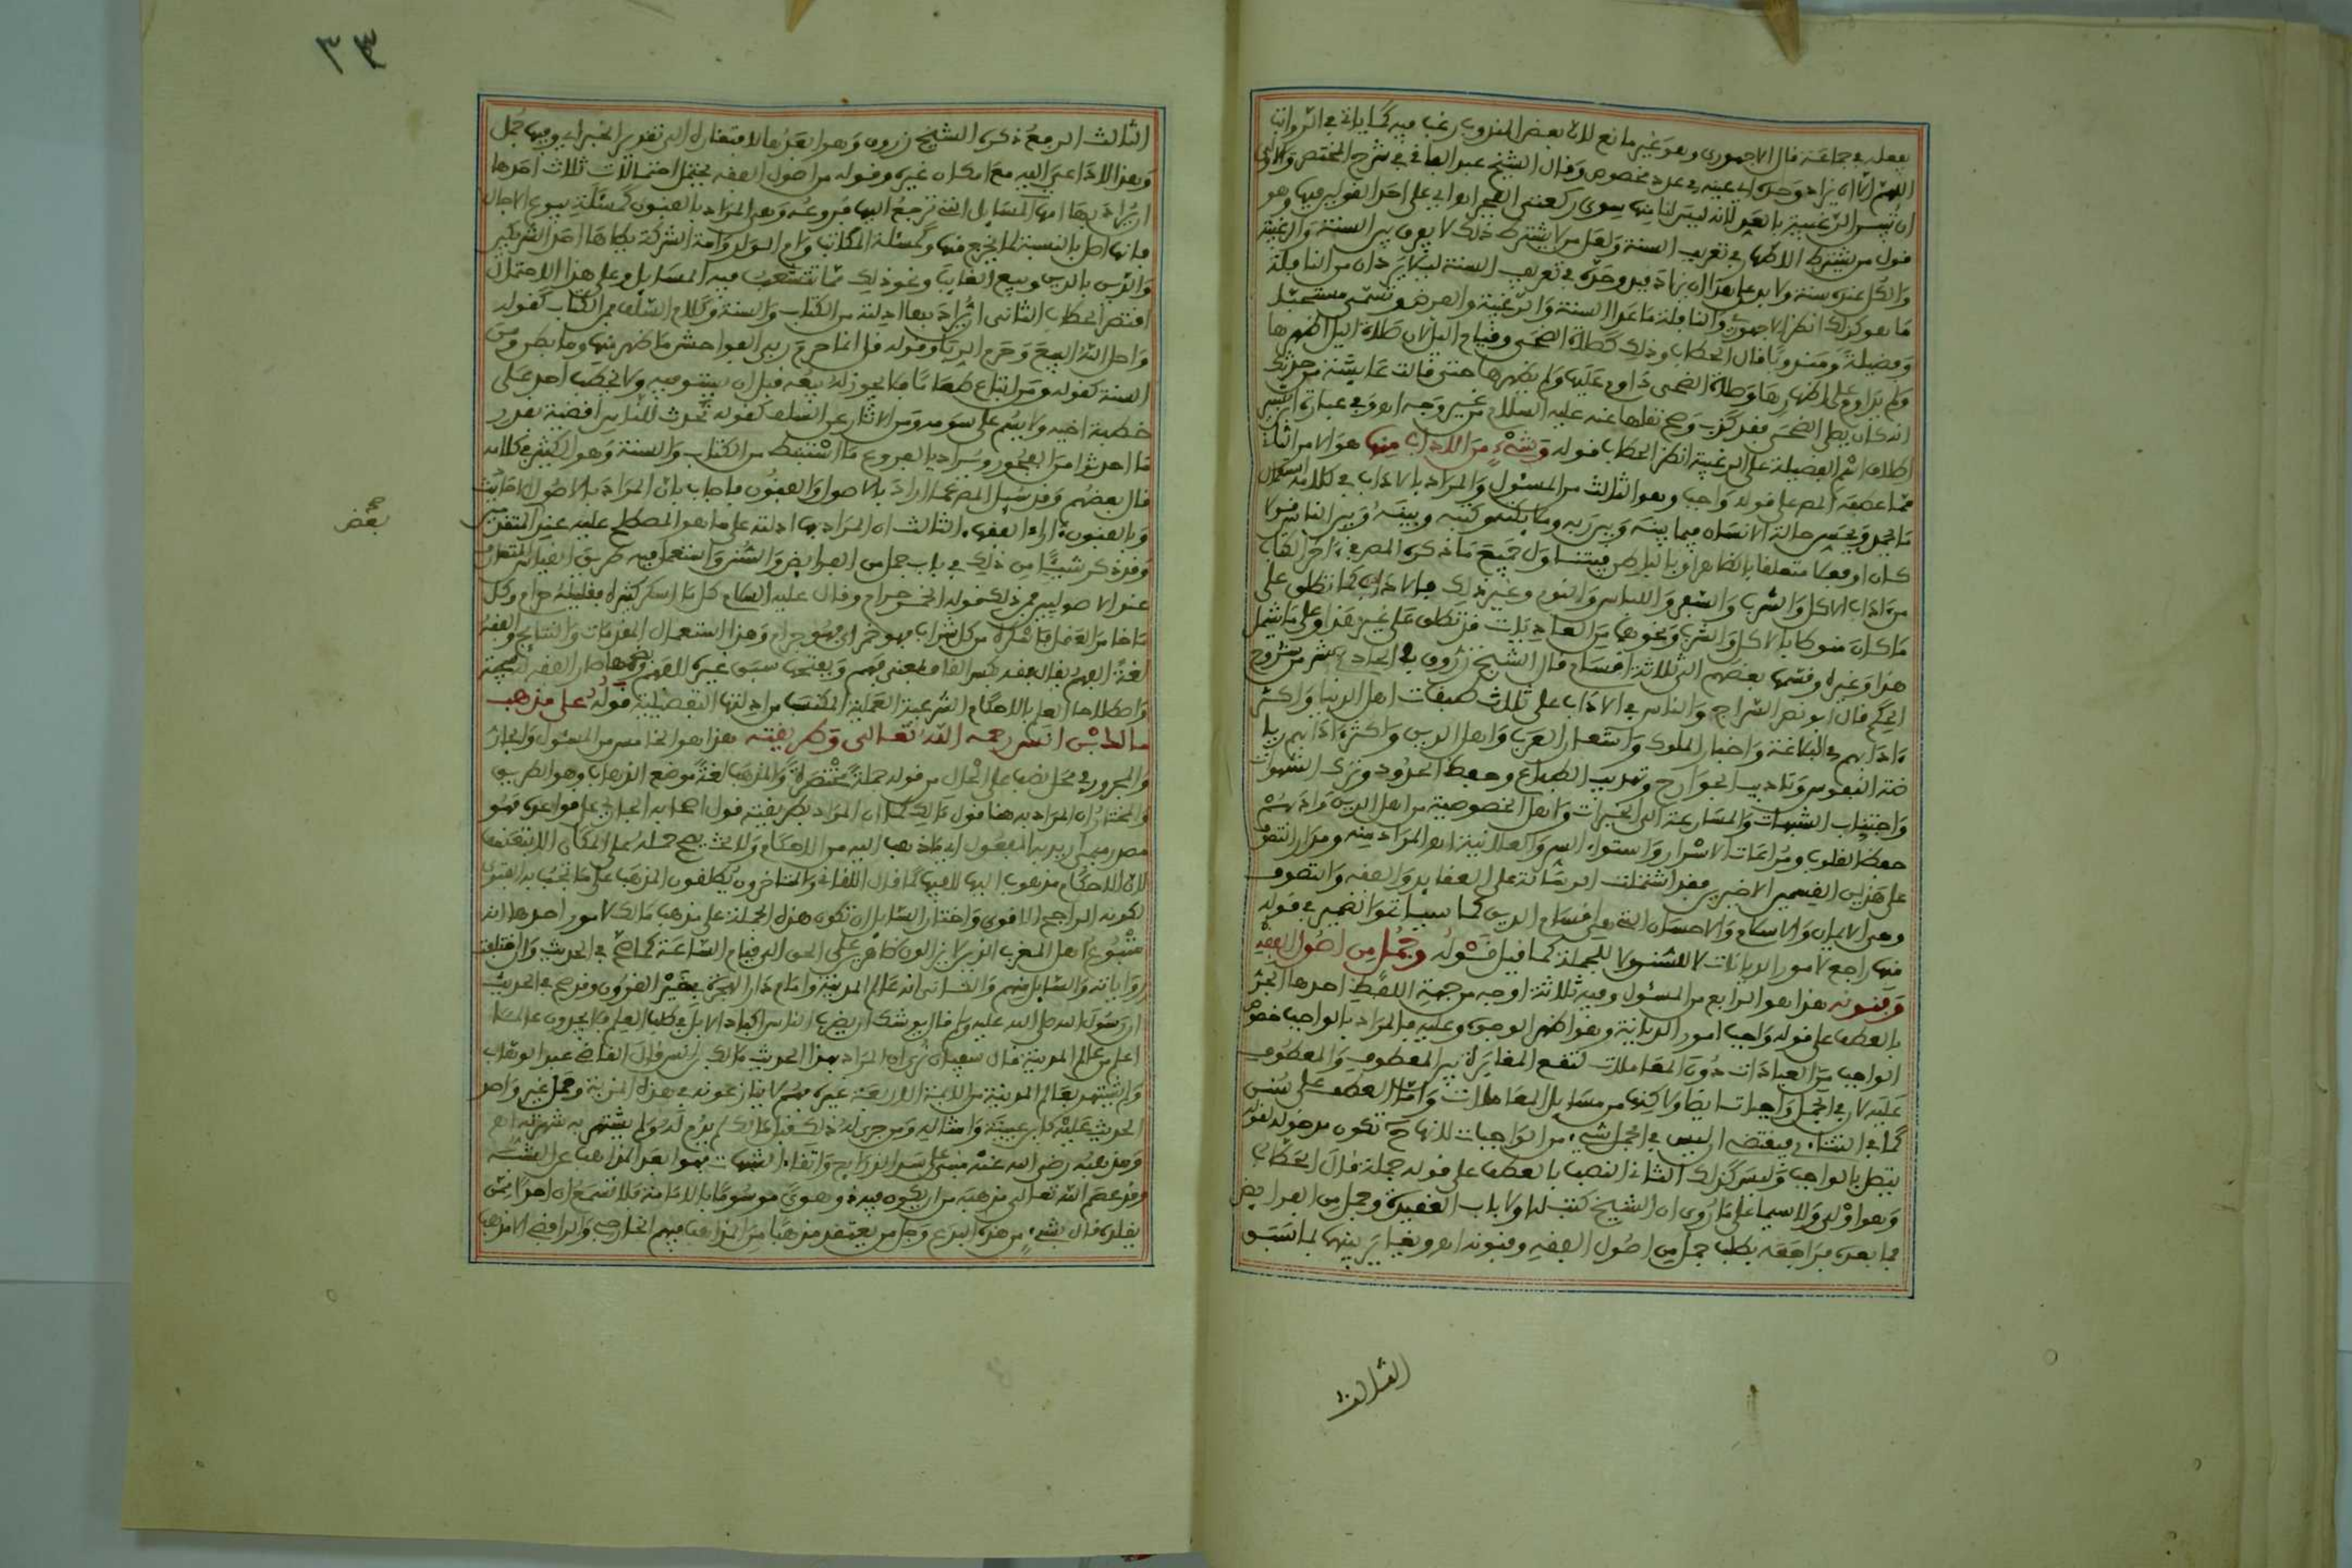 يفعله في جماعة قال الاجهوري وهو غير مانع لان بعض المندوب رغب فيه كما ياتي في الرواتب
اللهم الا ان يزاد وحده اي عينه في عدد مخصوص وقال الشيخ عبد الباقي في شرح المختصر والاولى
ان تفسر الرغيبة بالعد لانه ليس لنا منها سوى ركعتي الفجر اي على احد القولين فيها وهو
قول من يشترط الاظهار في تعريف السنة ولعل من لا يشترط ذلك لا يفرق بين السنة والرغيبة
والكل عنده سنة ولا بد على هذا ان يزاد فيه وحده في تعريف السنة ليتمايزا اذ ان من النافلة
ما هو كذلك انظر الاجهوري والنافلة ما عدا السنة والرغيبة والفرض وتسمى مستحبة
وفضيلة ومندوبا قال الحطاب وذلك كصلاة الضحى وقيام الليل لان صلاة الليل اظهرها
ولم يداوم على اظهارها وصلاة الضحى داوم عليها ولم يظهرها حتى قالت عائشة من حدثك
انه كان يصلي الضحى فقد كذب وصح نقلها عنه عليه السلام من غير وجه اهـ وفي عبارة ابن بشير
اطلاق اسم الفضيلة على الرغيبة انظر الحطاب قوله وشيء من الاداب منها هو الامر الثالث
مما عطفه المص على قوله واجب وهو الثالث من المسئول والمراد بالاداب في كلامه استعمال
ما يجمل ويحسن حالة الانسان فيما بينه وبين ربه وملائكته وكتبه وبينه وبين الناس قولا
كان او فعلا متعلقا بالظاهر او بالباطن فيتناول جميع ما ذكره المص في اخر الكتاب
من اداب الاكل والشرب والشعر واللباس والنوم وغير ذلك فالاداب كما تطلق على
ما كان منوطا بالاكل والشرب ونحوهما من العاديات قد تطلق على غير هذا وعلى ما يشمل
هذا وغيره وقسمها بعضهم الى ثلاثة اقسام قال الشيخ زروق في الحادي عشر من شروح
الحكم قال ابو نصر السراج والناس في الاداب على ثلاث طبقات اهل الدنيا واكثر
ءادابهم في البلاغة واخبار الملوك واشعار العرب واهل الدين واكثر ءادابهم ريا
ضة النفوس وتاديب الجوارح وتهذيب الطباع وحفظ الحدود وترك الشهوات
واجتناب الشبهات والمسارعة الى الخيرات واهل الخصوصية من اهل الدين وادبهم
حفظ القلوب ومراعات الاسرار واستواء السر والعلانية اهـ المراد منه ومدار التصوف
على هذين القسمين الاخيرين فقد اشتملت الرسالة على العقايد والفقه والتصوف
وهي الايمان والاسلام والاحسان التي هي اقسام الدين كما سياتي والضمير في قوله
منها راجع لامور الديانات لا للسنن ولا للجملة كما قيل قوله وجمل من اصول الفقه
وفنونه هذا هو الرابع من المسئول وفيه ثلاثة اوجه من جهة اللفظ احدها الجر
بالعطف على قوله واجب امور الديانة وهو اظهر الوجوه وعليه فالمراد بالواجب خصوص
الواجب من العبادات دون المعاملات لتقع المغايرة بين المعطوف والمعطوف
عليه لان في الجمل واجبات ايضا ولاكنها من مسايل المعاملات واما العطف على سنن
كما في التتائي فيقتضي ان ليس في الجمل شيء من الواجبات لانها ح تكون مدخولة لقوله
يتصل بالواجب وليس كذلك الثاني النصب بالعطف على قوله جملة قال الحطاب
وهو اولى ولاسيما على ما روي ان الشيخ كتب له اولا باب العقيدة وجمل من الفرايض
فما بعده فراجعه بطلب جمل من اصول الفقه وفنونه اهـ ويغاير بينهما بما سبق
الثالث
٣٣
الثالث الرفع ذكره الشيخ زروق وهو ابعدها لافتقاره الى تقدير الخبر اي وفيها جمل
وهذا لا داعي اليه مع امكان غيره وقوله من اصول الفقه يحتمل احتمالات ثلاث احدها
ان يراد بها امهات المسايل التي ترجع اليها فروعه وهو المراد بالفنون كمسئلة بيوع الاجال
فانها اصل بالنسبة لما يخرج منها وكمسئلة المكاتب وام الولد وامة الشركة يطاها احد الشريكين
والدين بالدين وبيع الغايب ونحو ذلك مما تتشعب فيه المسايل وعلى هذا الاحتمال
اقتصر الحطاب الثاني ان يراد بها ادلته من الكتاب والسنة وكلام السلف فمن الكتاب كقوله
واحل الله البيع وحرم الربا وقوله قل انما حرم ربي الفواحش ما ظهر منها وما بطن ومن
السنة كقوله ومن ابتاع طعاما فلا يجوز له بيعه قبل ان يستوفيه ولا يخطب احد على
خطبة اخيه ولا يسم على سومه ومن الاثار عن السلف كقوله تحدث للناس اقضية بقدر
ما احدثوا من الفجور ويراد بالفروع ما استنبط من الكتاب والسنة وهو الكثير في كلامه
قال بعضهم وقد سئل المص عما اراد بالاصول والفنون فاجاب بان المراد بالاصول الاحاديث
وبالفنون ءاراء الفقهاء الثالث ان المراد بها ادلته على ما هو المصطلح عليه عند المتقدمين
بعض صح
وقد ذكر شيئا من ذلك في باب جمل من الفرايض والسنن واستعمل فيه طريق القياس المتعارف
عند الاصوليين فمن ذلك قوله الخمر حرام وقال عليه السلام كل ما اسكر كثيره فقليله حرام وكل
ما خامر العقل فاسكره من كل شراب فهو خمر اي فهو حرام وهذا استعمال المقدمات والنتايج والفقه
لغة الفهم يقال فقه بكسر القاف بمعنى فهم وبفتحها سبق غيره للفهم وبضمها صار الفقه له سجية
واصطلاحا العلم بالاحكام الشرعية العملية المكتسب من ادلتها التفصيلية قوله على مذهب
مالك بن انس رحمه الله تعالى وطريقته هذا هو الخامس من المسئول والجار
والمجرور في محل نصب على الحال من قوله جملة مختصرة والمذهب لغة موضع الذهاب وهو الطريق
والمختار ان المراد به هنا قول مالك كما ان المراد بطريقته قول اصحابه الجاري على قواعده فهو
مصدر ميمي اريد به المفعول اي ما ذهب اليه من الاحكام ولا يصح حمله على المكان الا بتعسف
لان الاحكام مذهوب اليها لا فيها كما قال اللقاني والمتاخرون يطلقون المذهب على ما تجب به الفتوى
لكونه الراجح الاقوى واختار السايل ان تكون هذه الجملة على مذهب مالك لامور احدها انه
متبوع اهل المغرب الذين لا يزالون ظاهرين على الحق الى قيام الساعة كما صح في الحديث وان اختلفت
رواياته والسايل منهم والثاني انه عالم المدينة وامام دار الهجرة بخير القرون وقد صح في الحديث
ان رسول الله صلى الله عليه ولم قال يوشك ان يضرب الناس اكباد الابل في طلب العلم فلا يجدون عالما
اعلم من عالم المدينة قال سفيان نرى ان المراد بهذا الحديث مالك بن انس قال القاضي عبد الوهاب
ولم يشتهر بعالم المدينة من الايمة الاربعة غيره فهم لا ينازعونه في هذه المزية وحمل غير واحد
الحديث عليه كابن عيينة وامثاله ومن جرى له ذلك قبل مالك لم يدم له ولم يشتهر به شهرته اهـ
ومذهبه رضي الله عنه مبني على سد الذرايع واتقاء الشبهات فهو ابعد المذاهب عن الشبه
وقد عصم الله تعالى مذهبه من ان يكون فيه ذو هوى موسوما بالامامة فلا تسمع ان احدا ممن
يقلده قال بشيء من هذه البدع وجل من يعتقد مذهبا من المذاهب فيهم الخارجي والرافضي الا مذهب